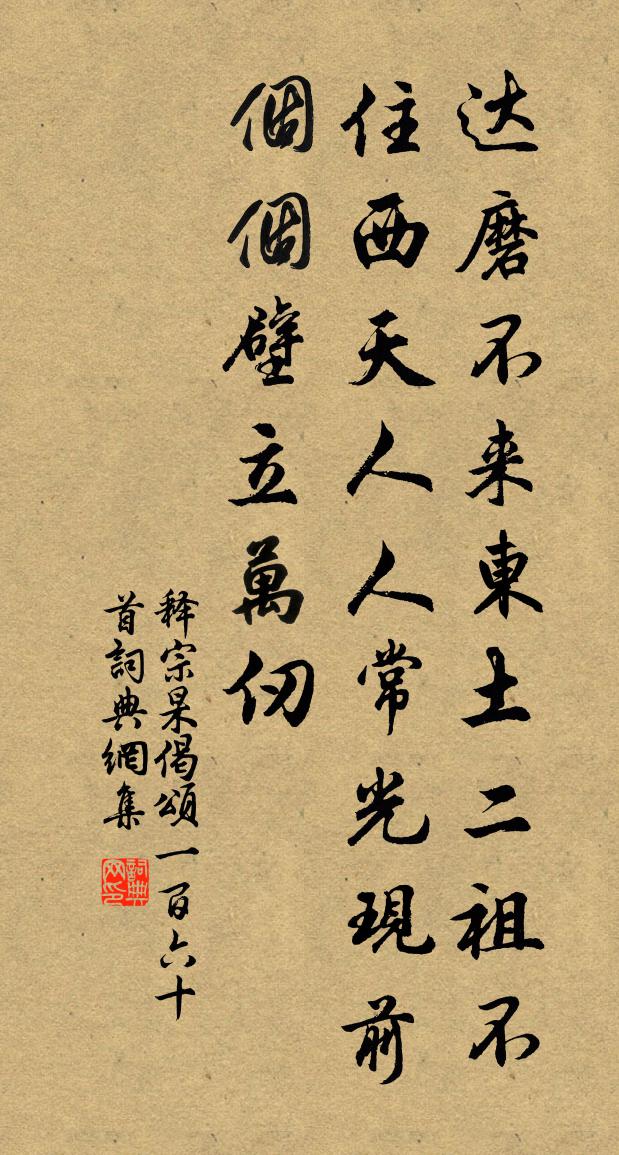 达磨不来東土二祖不
住西天人人常光現前
個個壁立萬仞
释宗杲偈頌一百六十
首詞典網集
詞典
网印